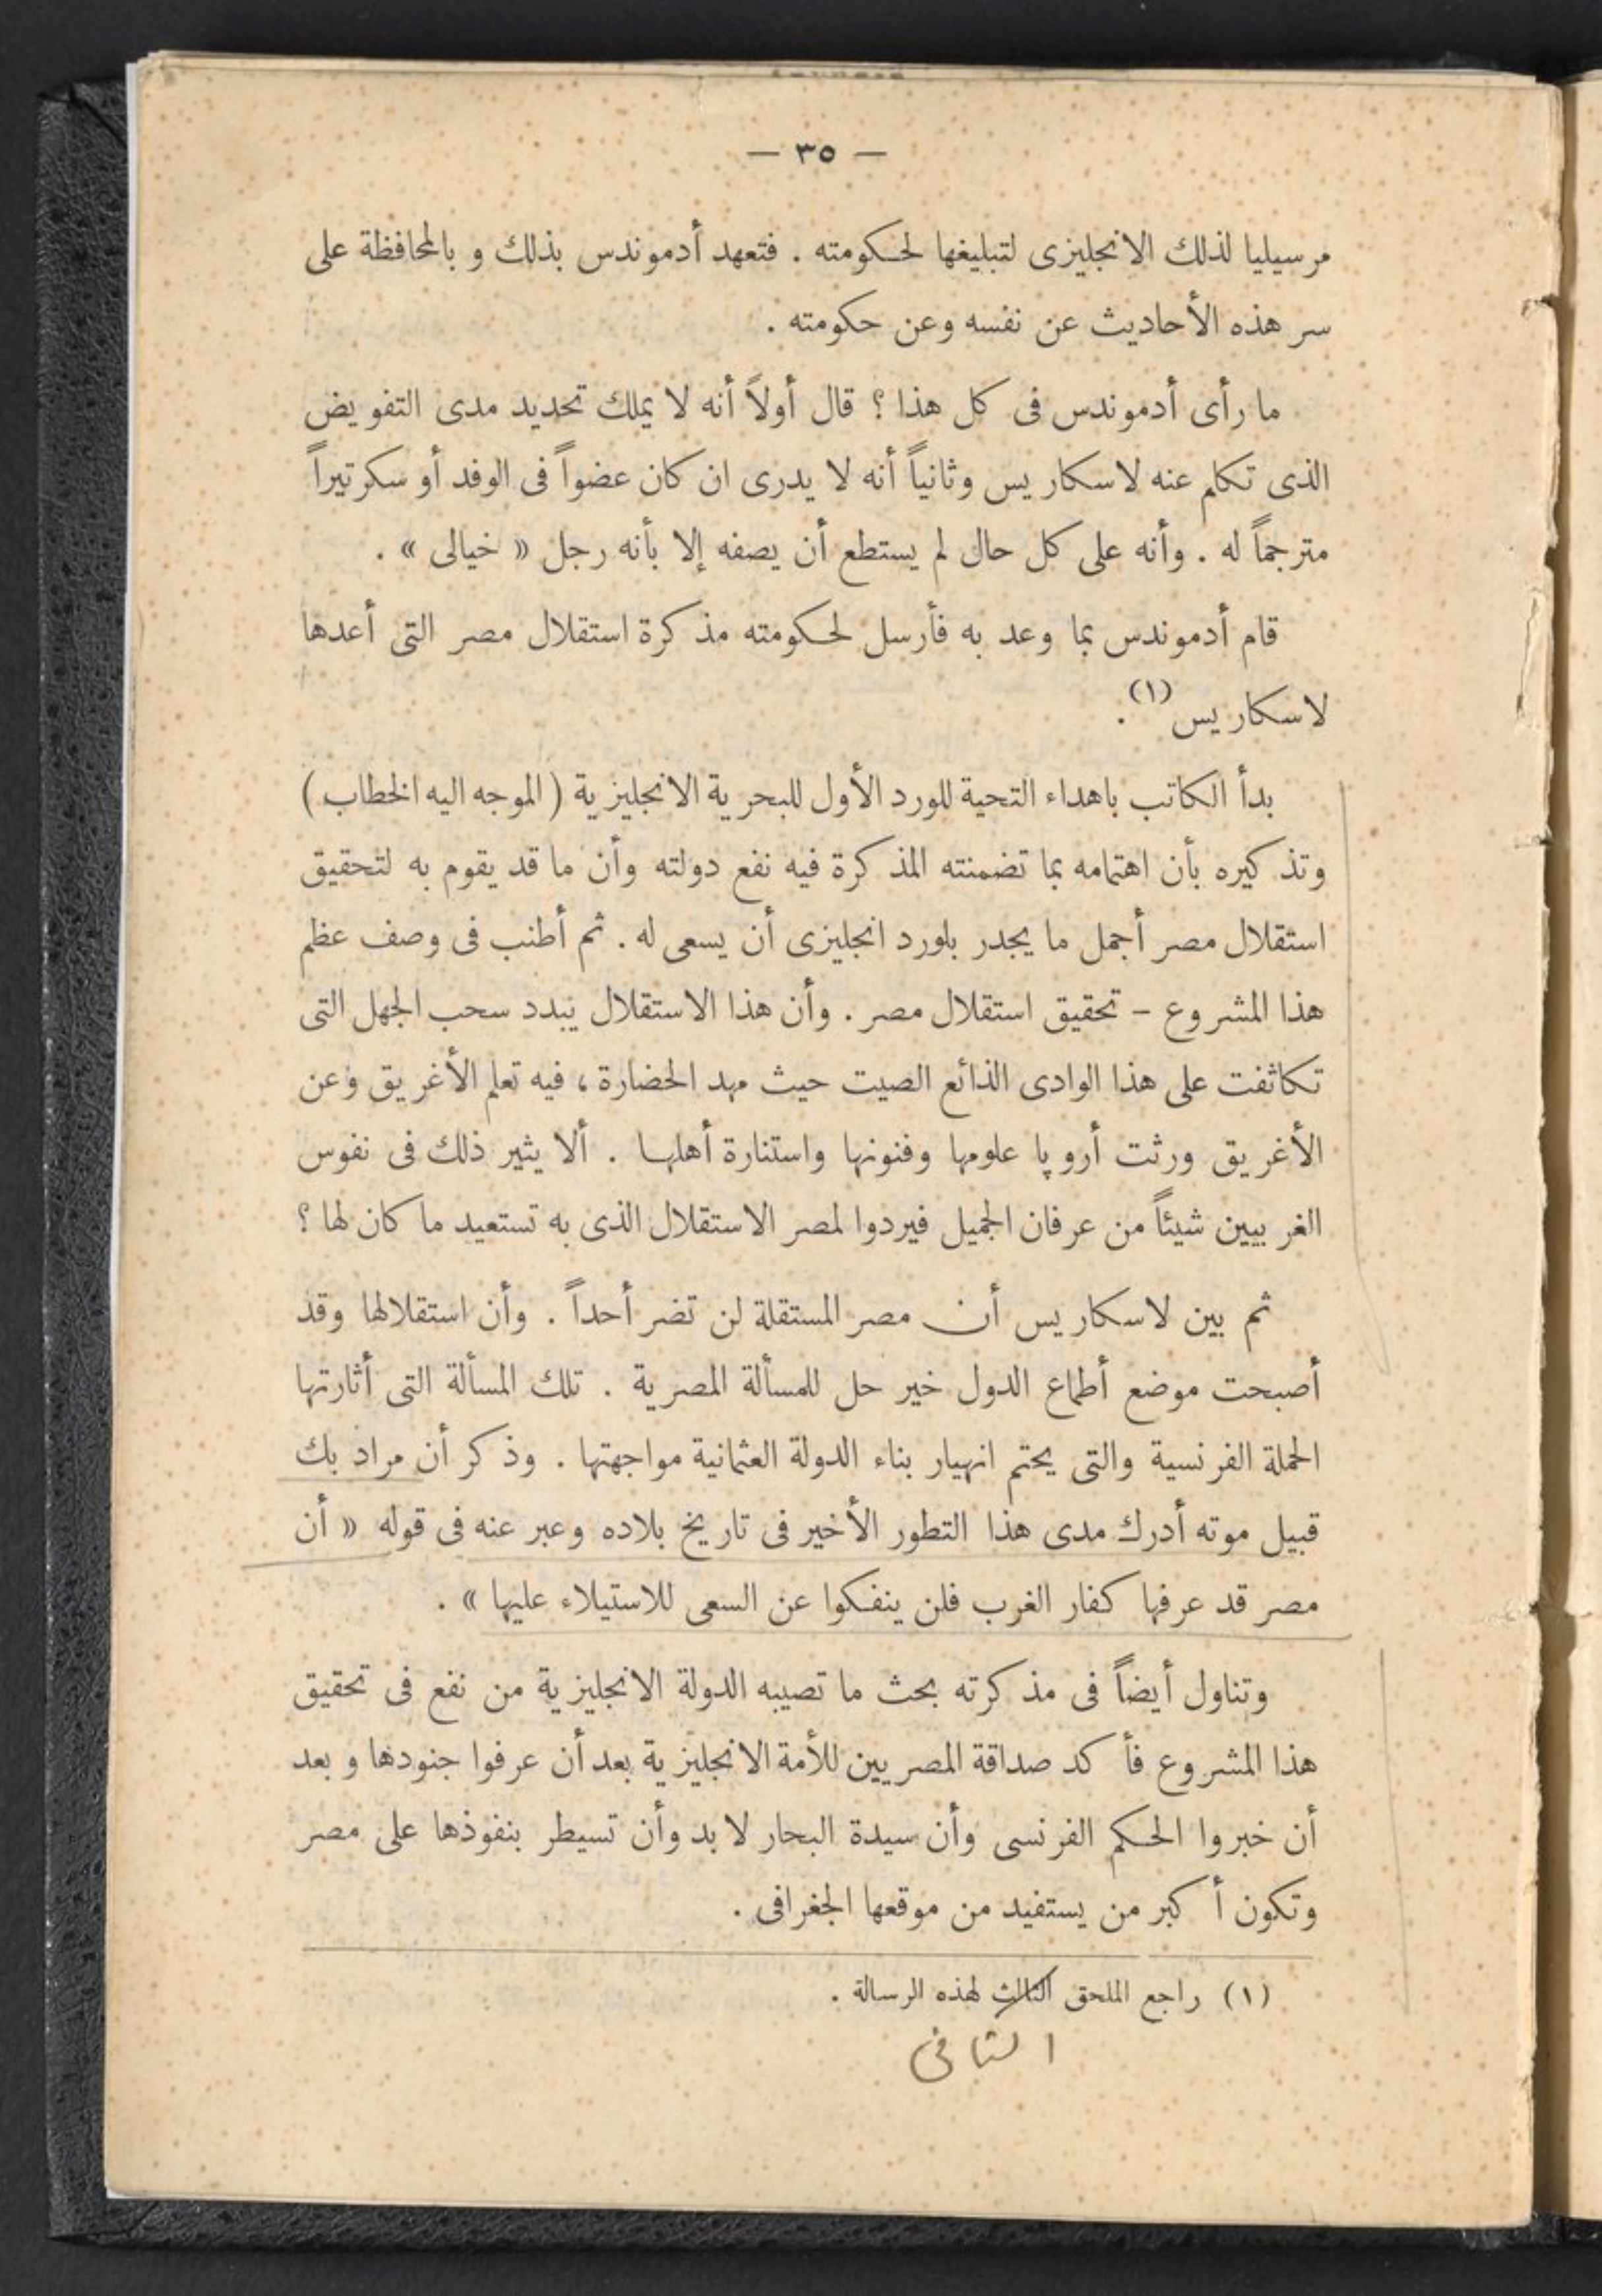 — ٣٥ —
مرسيليا لذلك الانجليزى لتبليغها لحكومته . فتعهد أدموندس بذلك و بالمحافظة على
سر هذه الأحاديث عن نفسه وعن حكومته .
ما رأى أدموندس فى كل هذا ؟ قال أولاً أنه لا يملك تحديد مدى التفويض
الذى تكلم عنه لاسكاريس وثانياً أنه لا يدرى ان كان عضواً فى الوفد أو سكرتيراً
مترجماً له . وأنه على كل حال لم يستطع أن يصفه إلا بأنه رجل « خيالى » .
قام أدموندس بما وعد به فأرسل لحكومته مذكرة استقلال مصر التى أعدها
لاسكاريس (١).
بدأ الكاتب باهداء التحية للورد الأول للبحرية الانجليزية ( الموجه اليه الخطاب )
وتذكيره بأن اهتمامه بما تضمنته المذكرة فيه نفع دولته وأن ما قد يقوم به لتحقيق
استقلال مصر أجمل ما يجدر بلورد انجليزى أن يسعى له . ثم أطنب فى وصف عظم
هذا المشروع – تحقيق استقلال مصر . وأن هذا الاستقلال يبدد سحب الجهل التى
تكاثفت على هذا الوادى الذائع الصيت حيث مهد الحضارة ، فيه تعلم الأغريق وعن
الأغريق ورثت أروپا علومها وفنونها واستنارة أهلها . ألا يثير ذلك فى نفوس
الغربيين شيئاً من عرفان الجميل فيردوا لمصر الاستقلال الذى به تستعيد ما كان لها ؟
ثم بين لاسكاريس أن مصر المستقلة لن تضر أحداً . وأن استقلالها وقد
أصبحت موضع أطماع الدول خير حل للمسألة المصرية . تلك المسألة التى أثارتها
الحملة الفرنسية والتى يحتم انهيار بناء الدولة العثمانية مواجهتها . وذكر أن مراد بك
قبيل موته أدرك مدى هذا التطور الأخير فى تاريخ بلاده وعبر عنه فى قوله « أن
مصر قد عرفها كفار الغرب فلن ينفكوا عن السعى للاستيلاء عليها » .
وتناول أيضاً فى مذكرته بحث ما تصيبه الدولة الانجليزية من نفع فى تحقيق
هذا المشروع فأكد صداقة المصريين للأمة الانجليزية بعد أن عرفوا جنودها و بعد
أن خبروا الحكم الفرنسى وأن سيدة البحار لا بد وأن تسيطر بنفوذها على مصر
وتكون أكبر من يستفيد من موقعها الجغرافى .
(١) راجع الملحق الثالث لهذه الرسالة .
الثانى